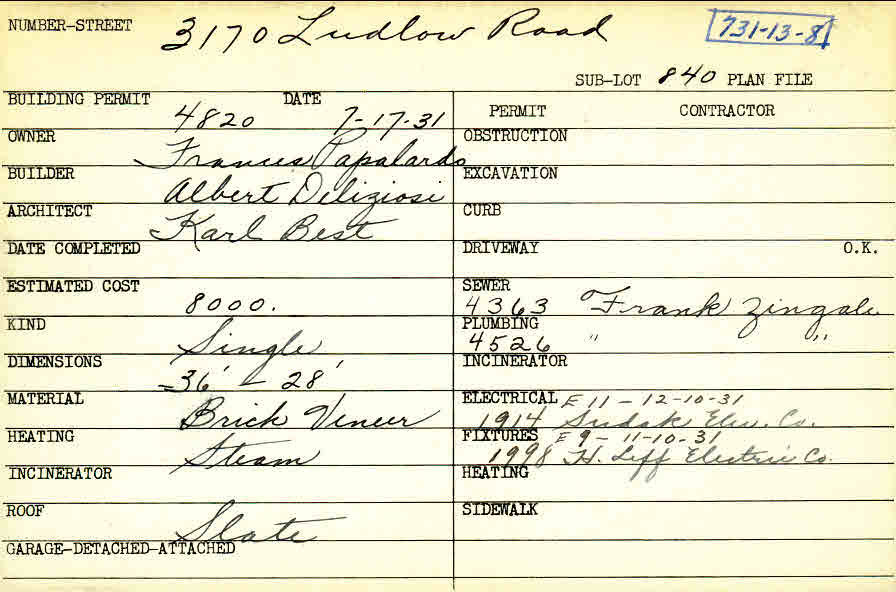 NUMBER-STREET 3170 Ludlow Road 731-13-81
SUB-LOT 840 PLAN FILE
BUILDING PERMIT 4820 DATE 7-17-31
OWNER Frances Papalardo
BUILDER Albert Deliziosi
ARCHITECT Karl Best
DATE COMPLETED
ESTIMATED COST 8000.
KIND Single
DIMENSIONS 36' - 28'
MATERIAL Brick Veneer
HEATING Steam
INCINERATOR
ROOF Slate
GARAGE-DETACHED-ATTACHED
PERMIT CONTRACTOR
OBSTRUCTION
EXCAVATION
CURB
DRIVEWAY O.K.
SEWER 4363 Frank Zingale
PLUMBING 4526 " "
INCINERATOR
ELECTRICAL E 11 - 12-10-31
1914 Elec. Co.
FIXTURES E 9 - 11-10-31
1998 H. Leff Electric Co.
HEATING
SIDEWALK